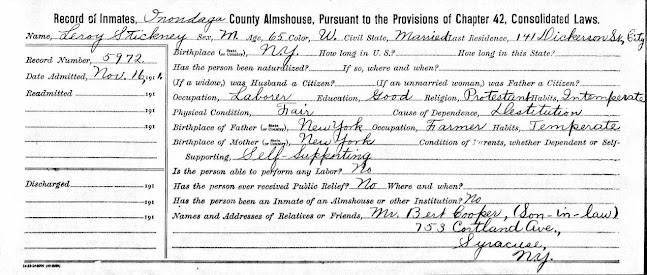 Record of Inmates, Onondaga County Almshouse, Pursuant to the Provisions of Chapter 42, Consolidated Laws.
Name, Leroy Stickney Sex, M Age, 65 Color, W. Civil State, Married Last Residence, 141 Dickerson St., City
Record Number, 5972.
Date Admitted, Nov. 16, 191
Readmitted 191
191
191
191
Discharged 191
191
191
191
Birthplace (State or Country), N.Y. How long in U. S.? How long in this State?
Has the person been naturalized? If so, where and when?
(If a widow,) was Husband a Citizen? (If an unmarried woman,) was Father a Citizen?
Occupation, Laborer Education, Good Religion, Protestant Habits, Intemperate
Physical Condition, Fair Cause of Dependence, Destitution
Birthplace of Father (State or Country), New York Occupation, Farmer Habits, Temperate
Birthplace of Mother (State or Country), New York Condition of Parents, whether Dependent or Self-
Supporting, Self-Supporting
Is the person able to perform any Labor? No
Has the person ever received Public Relief? No Where and when?
Has the person been an Inmate of an Almshouse or other Institution? No
Names and Addresses of Relatives or Friends, Mr. Bert Cooper, (Son-in-law)
753 Cortland Ave.,
Syracuse,
N.Y.